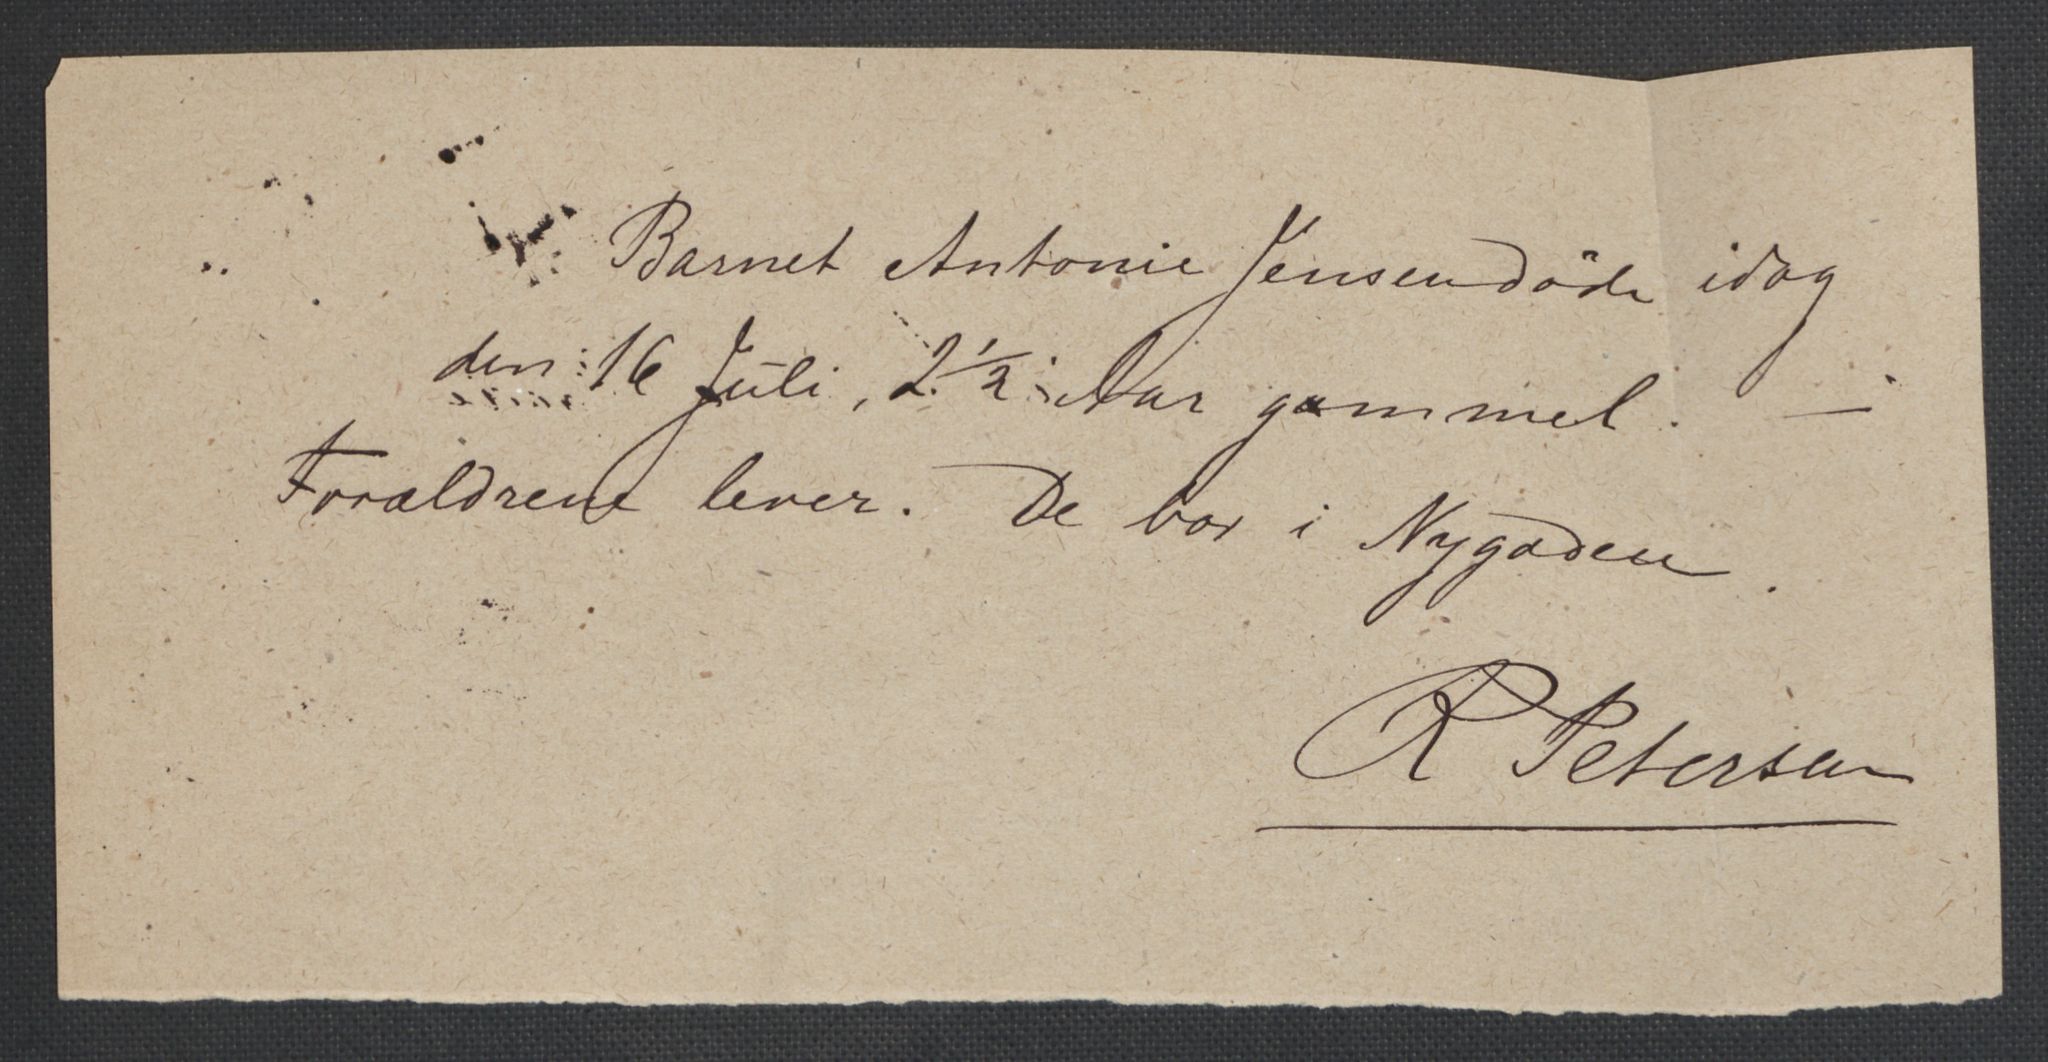 Barnet Antonie Jensen döde idag
den 16 Juli, 2 1/2 Aar gammel. —
Forældrene lever. De bor i Nygaden.
R Petersen